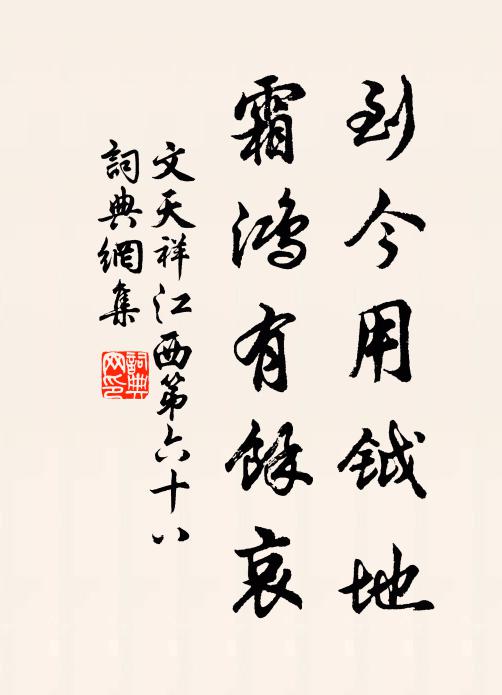 到今用鉞地
霜鴻有餘哀
文天祥江西第六十八
詞典網集
詞典網印